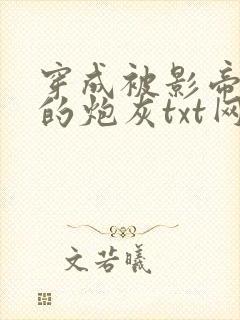 穿成被影帝
的炮灰txt网
文若曦